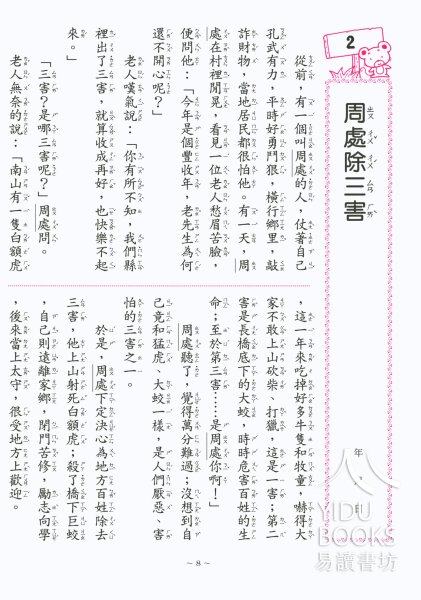 2
周處除三害
從前，有一個叫周處的人，仗著自己
孔武有力，平時好勇鬥狠，橫行鄉里，敲
詐財物，當地居民都很怕他。有一天，周
處在村裡閒晃，看見一位老人愁眉苦臉，
便問他：「今年是個豐收年，老先生為何
還不開心呢？」
老人嘆氣說：「你有所不知，我們縣
裡出了三害，就算收成再好，也快樂不起
來。」
「三害？是哪三害呢？」周處問。
老人無奈的說：「南山有一隻白額虎
，這一年來吃掉好多牛隻和牧童，嚇得大
家不敢上山砍柴、打獵，這是一害；第二
害是長橋底下的大蛟，時時危害百姓的生
命；至於第三害……是周處你啊！」
周處聽了，覺得萬分難過；沒想到自
己竟和猛虎、大蛟一樣，是人們厭惡、害
怕的三害之一。
於是，周處下定決心為地方百姓除去
三害，他上山射死白額虎；殺了橋下巨蛟
，自己則遠離家鄉，閉門苦修，勵志向學
，後來當上太守，很受地方上歡迎。
～8～
YIDU
BOOKS
易讀書坊